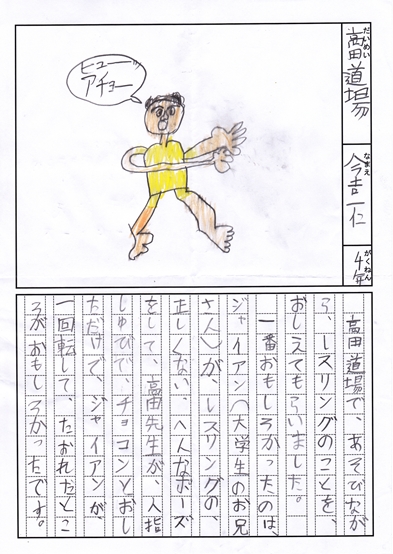 だいめい
髙田道場
なまえ
今吉一仁
がくねん
4年
ヒューッ
アチョー
髙田道場で、あそびなが
ら、レスリングのことを、
おしえてもらいました。
一番おもしろかったのは、
ジャイアン(大学生のお兄
さん)が、レスリングの、
正しくない、へんなポーズ
をして、髙田先生が、人指
しゅびで、チョコンとおし
ただけで、ジャイアンが、
一回転して、たおれたとこ
ろがおもしろかったです。